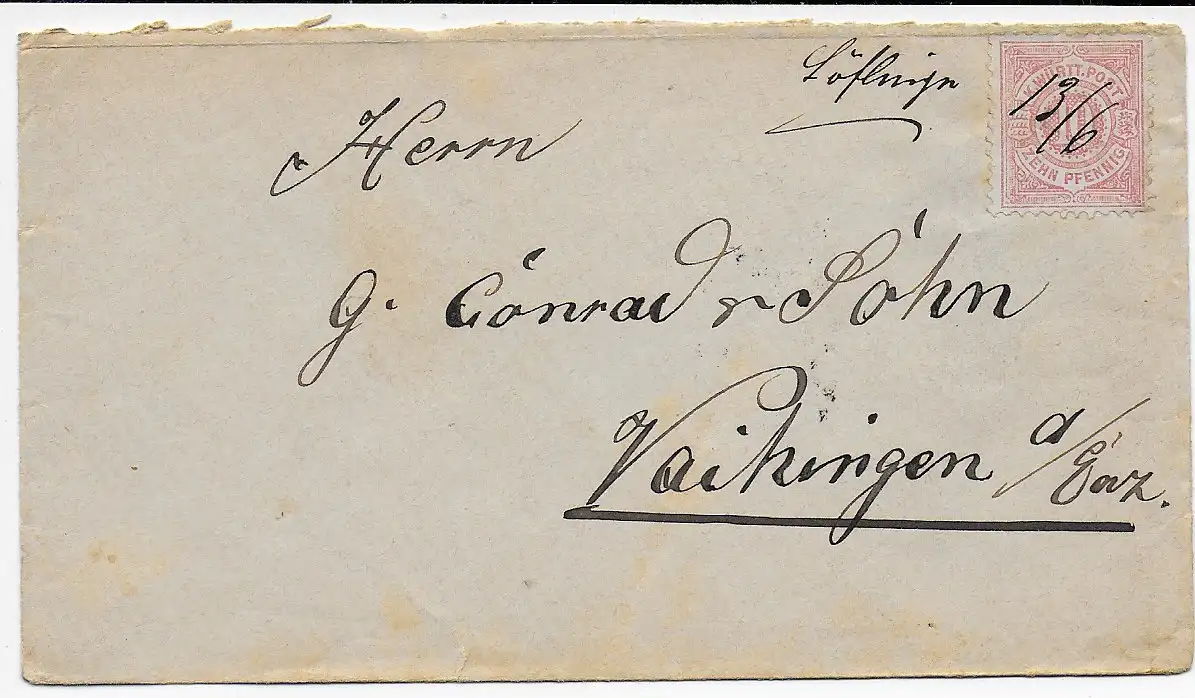 Löflinge
K. WÜRTT. POST
13/6
10
ZEHN PFENNIG
Herrn
G. Conrad & Sohn
Vaihingen a/Enz.